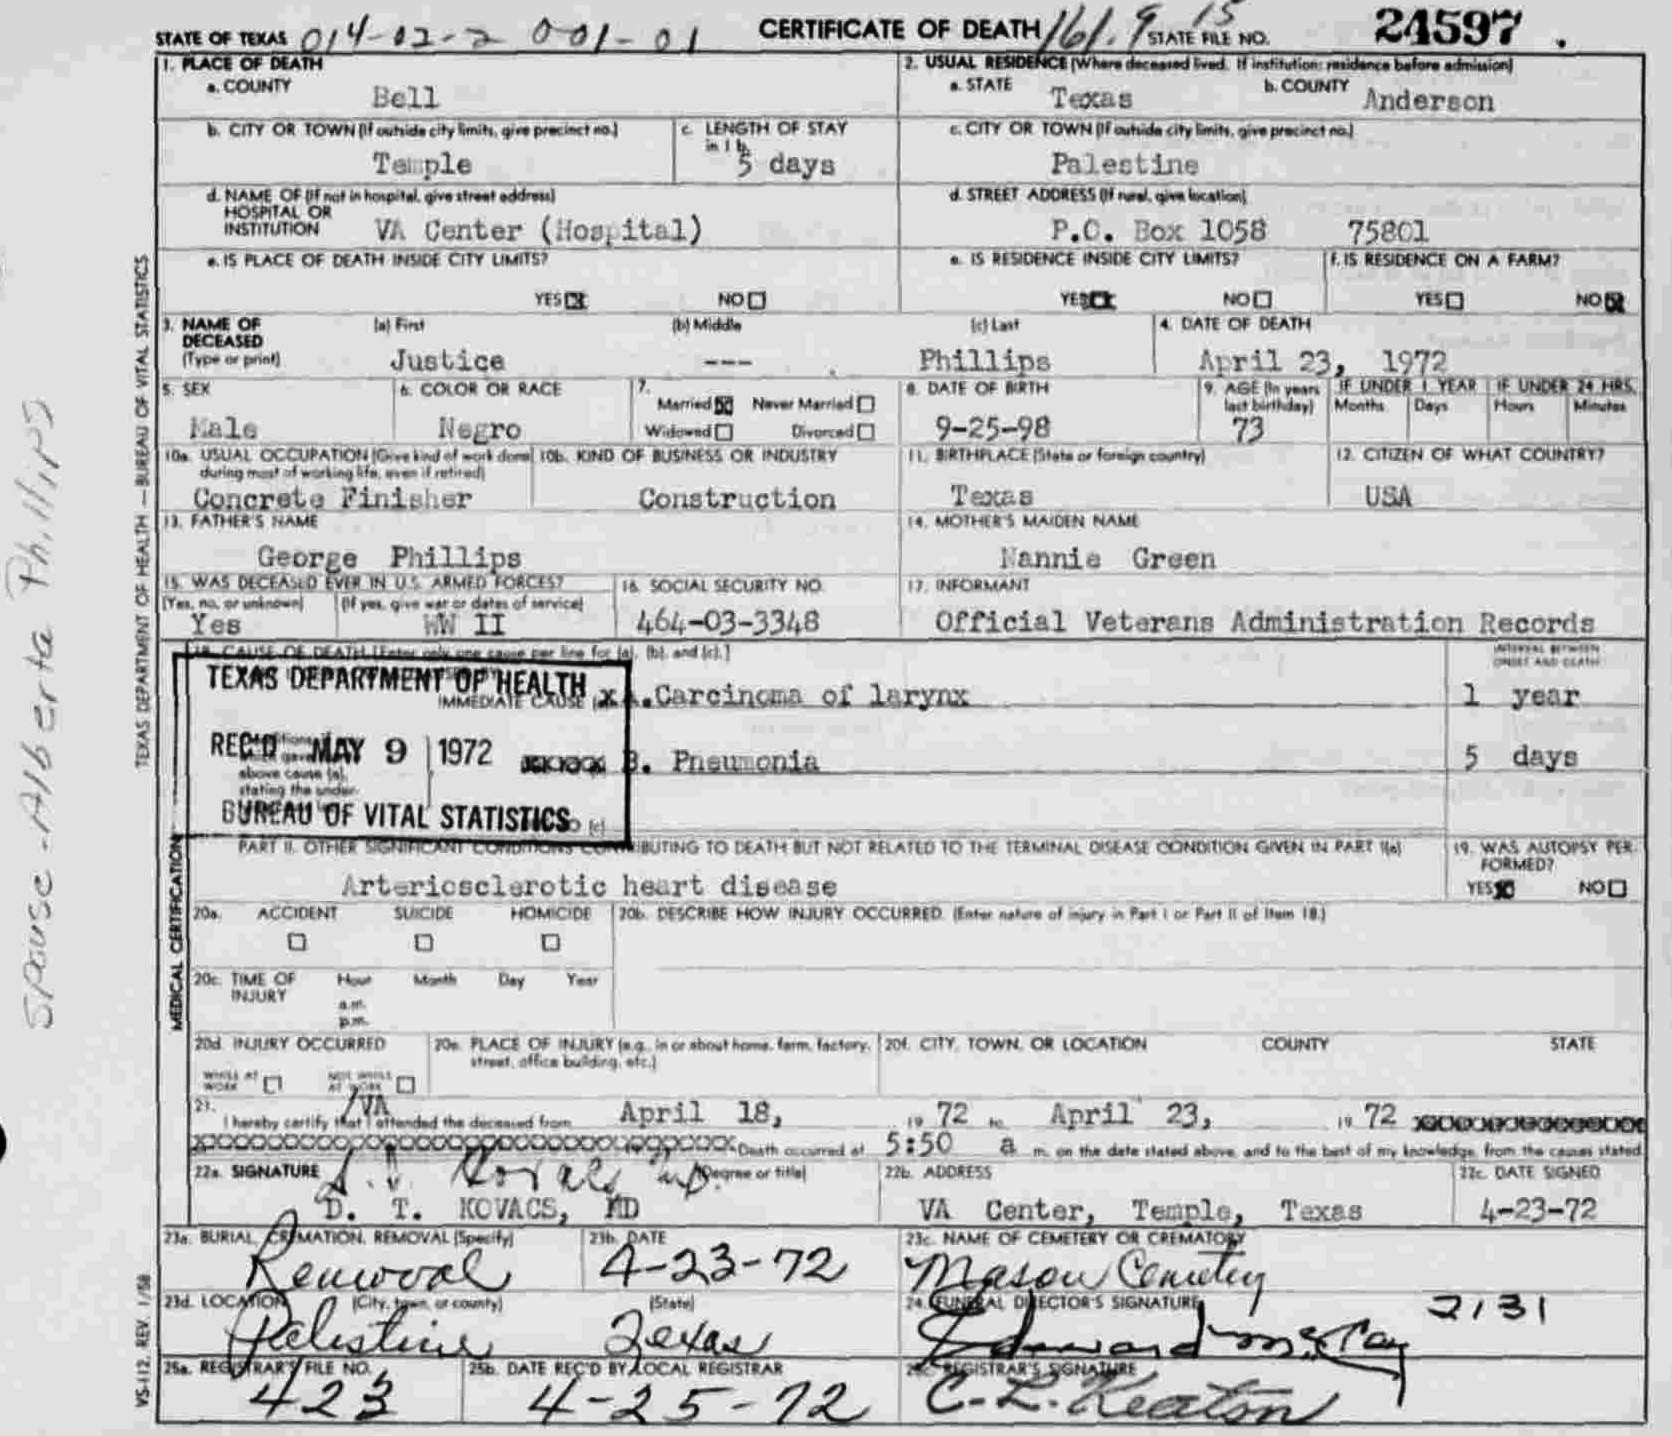 STATE OF TEXAS 014-02-2 001-01 CERTIFICATE OF DEATH 161.9 15 STATE FILE NO. 24597
1. PLACE OF DEATH
a. COUNTY
Bell
2. USUAL RESIDENCE (Where deceased lived. If institution: residence before admission)
a. STATE
Texas
b. COUNTY
Anderson
b. CITY OR TOWN (If outside city limits, give precinct no.)
Temple
c. LENGTH OF STAY
in 1 b.
5 days
c. CITY OR TOWN (If outside city limits, give precinct no.)
Palestine
d. NAME OF (If not in hospital, give street address)
HOSPITAL OR
INSTITUTION
VA Center (Hospital)
d. STREET ADDRESS (If rural, give location)
P.O. Box 1058 75801
e. IS PLACE OF DEATH INSIDE CITY LIMITS?
YES NO
e. IS RESIDENCE INSIDE CITY LIMITS?
YES NO
f. IS RESIDENCE ON A FARM?
YES NO
3. NAME OF
DECEASED
(Type or print)
(a) First
Justice
(b) Middle
---
(c) Last
Phillips
4. DATE OF DEATH
April 23, 1972
5. SEX
Male
6. COLOR OR RACE
Negro
7.
Married Never Married
Widowed Divorced
8. DATE OF BIRTH
9-25-98
9. AGE (In years
last birthday)
73
IF UNDER 1 YEAR
Months Days
IF UNDER 24 HRS.
Hours Minutes
10a. USUAL OCCUPATION (Give kind of work done
during most of working life, even if retired)
Concrete Finisher
10b. KIND OF BUSINESS OR INDUSTRY
Construction
11. BIRTHPLACE (State or foreign country)
Texas
12. CITIZEN OF WHAT COUNTRY?
USA
13. FATHER'S NAME
George Phillips
14. MOTHER'S MAIDEN NAME
Nannie Green
15. WAS DECEASED EVER IN U.S. ARMED FORCES?
(Yes, no, or unknown) (If yes, give war or dates of service)
Yes WW II
16. SOCIAL SECURITY NO.
464-03-3348
17. INFORMANT
Official Veterans Administration Records
18. CAUSE OF DEATH [Enter only one cause per line for (a), (b), and (c).]
INTERVAL BETWEEN
ONSET AND DEATH
TEXAS DEPARTMENT OF HEALTH
REC'D MAY 9 1972
BUREAU OF VITAL STATISTICS
IMMEDIATE CAUSE
A. Carcinoma of larynx 1 year
above cause (a),
stating the under-
B. Pneumonia 5 days
(c)
PART II. OTHER SIGNIFICANT CONDITIONS CONTRIBUTING TO DEATH BUT NOT RELATED TO THE TERMINAL DISEASE CONDITION GIVEN IN PART I(a)
Arteriosclerotic heart disease
19. WAS AUTOPSY PER-
FORMED?
YES NO
20a. ACCIDENT SUICIDE HOMICIDE
20b. DESCRIBE HOW INJURY OCCURRED. (Enter nature of injury in Part I or Part II of Item 18.)
20c. TIME OF
INJURY
Hour Month Day Year
a.m.
p.m.
20d. INJURY OCCURRED
WHILE AT
WORK
NOT WHILE
AT WORK
20e. PLACE OF INJURY (e.g., in or about home, farm, factory,
street, office building, etc.)
20f. CITY, TOWN, OR LOCATION COUNTY STATE
21.
I hereby certify that I/VA attended the deceased from April 18, 19 72 to April 23, 19 72
Death occurred at 5:50 a m. on the date stated above, and to the best of my knowledge, from the causes stated.
22a. SIGNATURE (Degree or title)
D. T. KOVACS, MD
22b. ADDRESS
VA Center, Temple, Texas
22c. DATE SIGNED
4-23-72
23a. BURIAL, CREMATION, REMOVAL (Specify)
Removal
23b. DATE
4-23-72
23c. NAME OF CEMETERY OR CREMATORY
Mason Cemetery
23d. LOCATION (City, town, or county) (State)
Palestine Texas
24. FUNERAL DIRECTOR'S SIGNATURE
Edward McCoy 2131
25a. REGISTRAR'S FILE NO.
423
25b. DATE REC'D BY LOCAL REGISTRAR
4-25-72
25c. REGISTRAR'S SIGNATURE
C. L. Keaton
TEXAS DEPARTMENT OF HEALTH — BUREAU OF VITAL STATISTICS
MEDICAL CERTIFICATION
VS-112, REV. 1/58
Spouse - Alberta Phillips